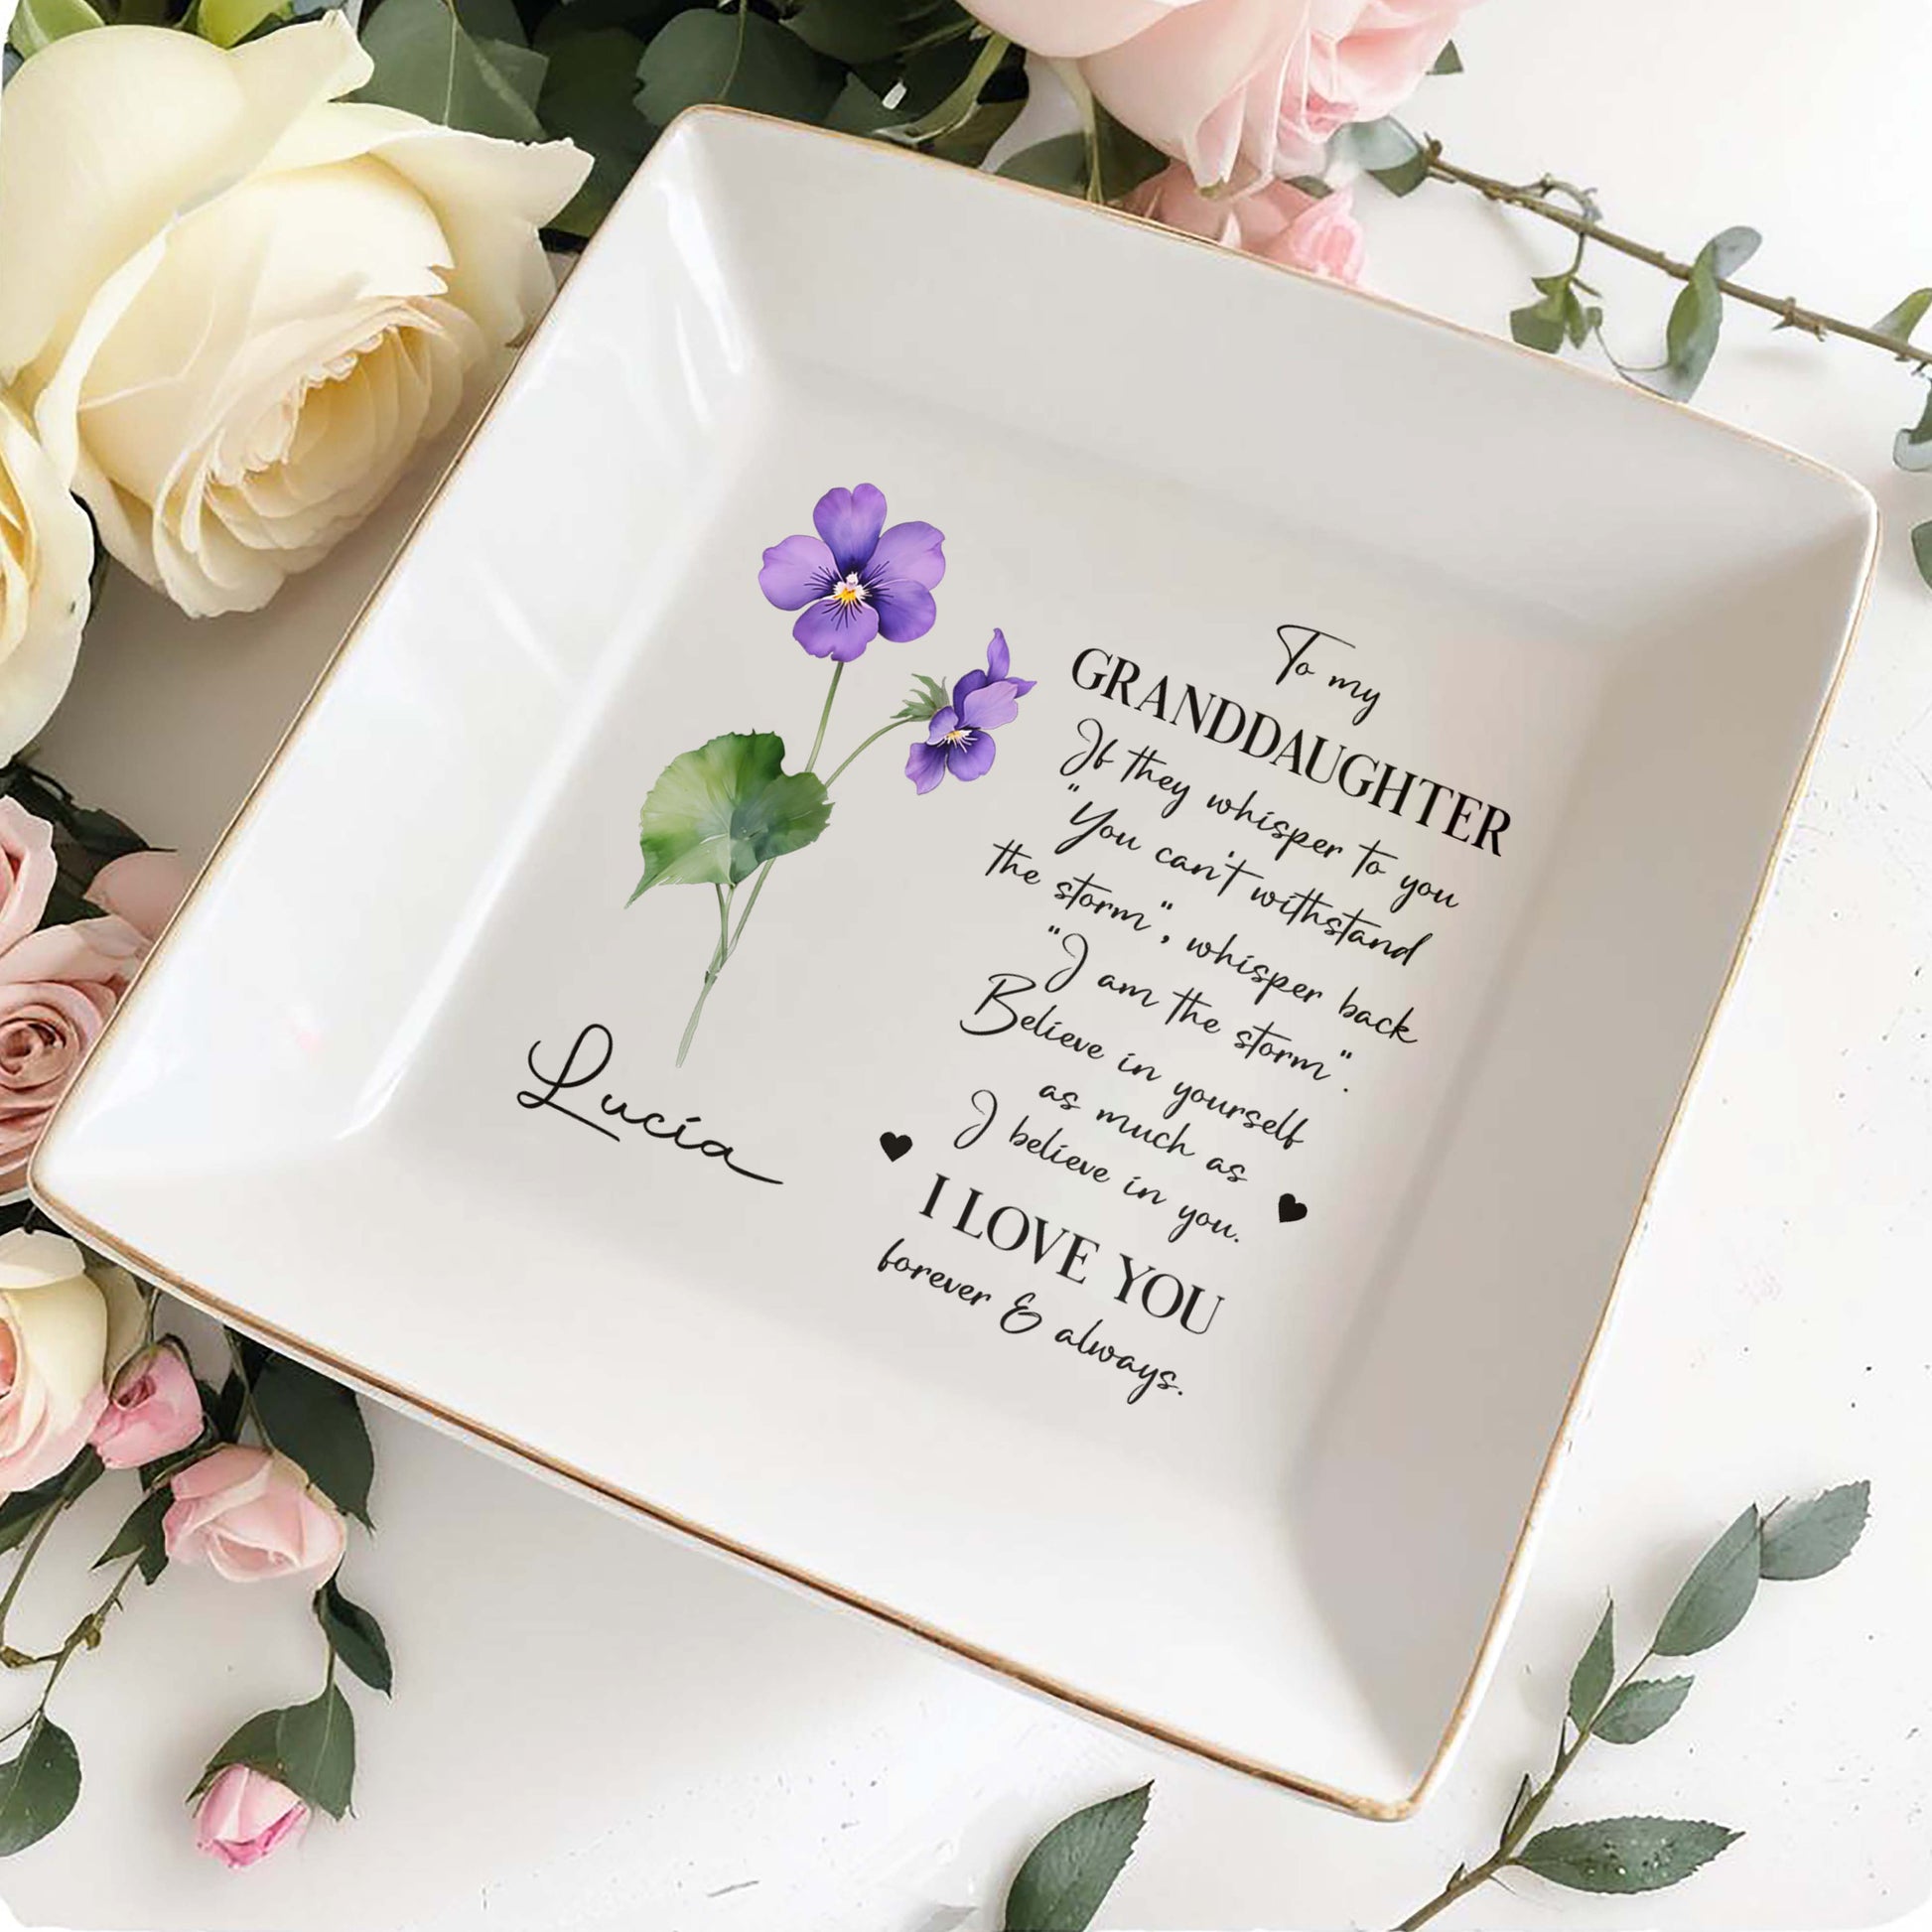 To my
GRANDDAUGHTER
If they whisper to you
"You can't withstand
the storm", whisper back
"I am the storm".
Believe in yourself
as much as
I believe in you.
I LOVE YOU
forever & always.
Lucia